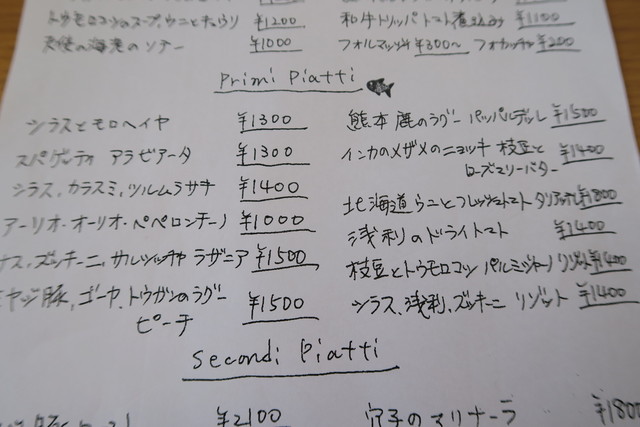 トウモロコシのスープ ウニとチュウリ ¥1200
和牛トリッパ トマト煮込み ¥1100
天使の海老のソテー ¥1000
フォルマッジ ¥300〜 フォカッチャ ¥200
Primi Piatti
シラスとモロヘイヤ ¥1300
スパゲッティ アラビアータ ¥1300
シラス、カラスミ、ツルムラサキ ¥1400
アーリオ・オーリオ・ペペロンチーノ ¥1000
ナス、ズッキーニ、サルシッチャ ラザニア ¥1500
ミヤジ豚、ゴーヤ、トウガンのラグー
ピーチ ¥1500
熊本鹿のラグー パッパルデッレ ¥1500
インカのメザメのニョッキ 枝豆と
ローズマリーバター ¥1400
北海道ウニとフレッシュトマト タリアッテレ ¥1800
浅利のドライトマト ¥1400
枝豆とトウモロコシ パルミジャーノ リゾット ¥1400
シラス、浅利、ズッキーニ リゾット ¥1400
Secondi Piatti
¥2100
穴子のマリナーラ ¥1800